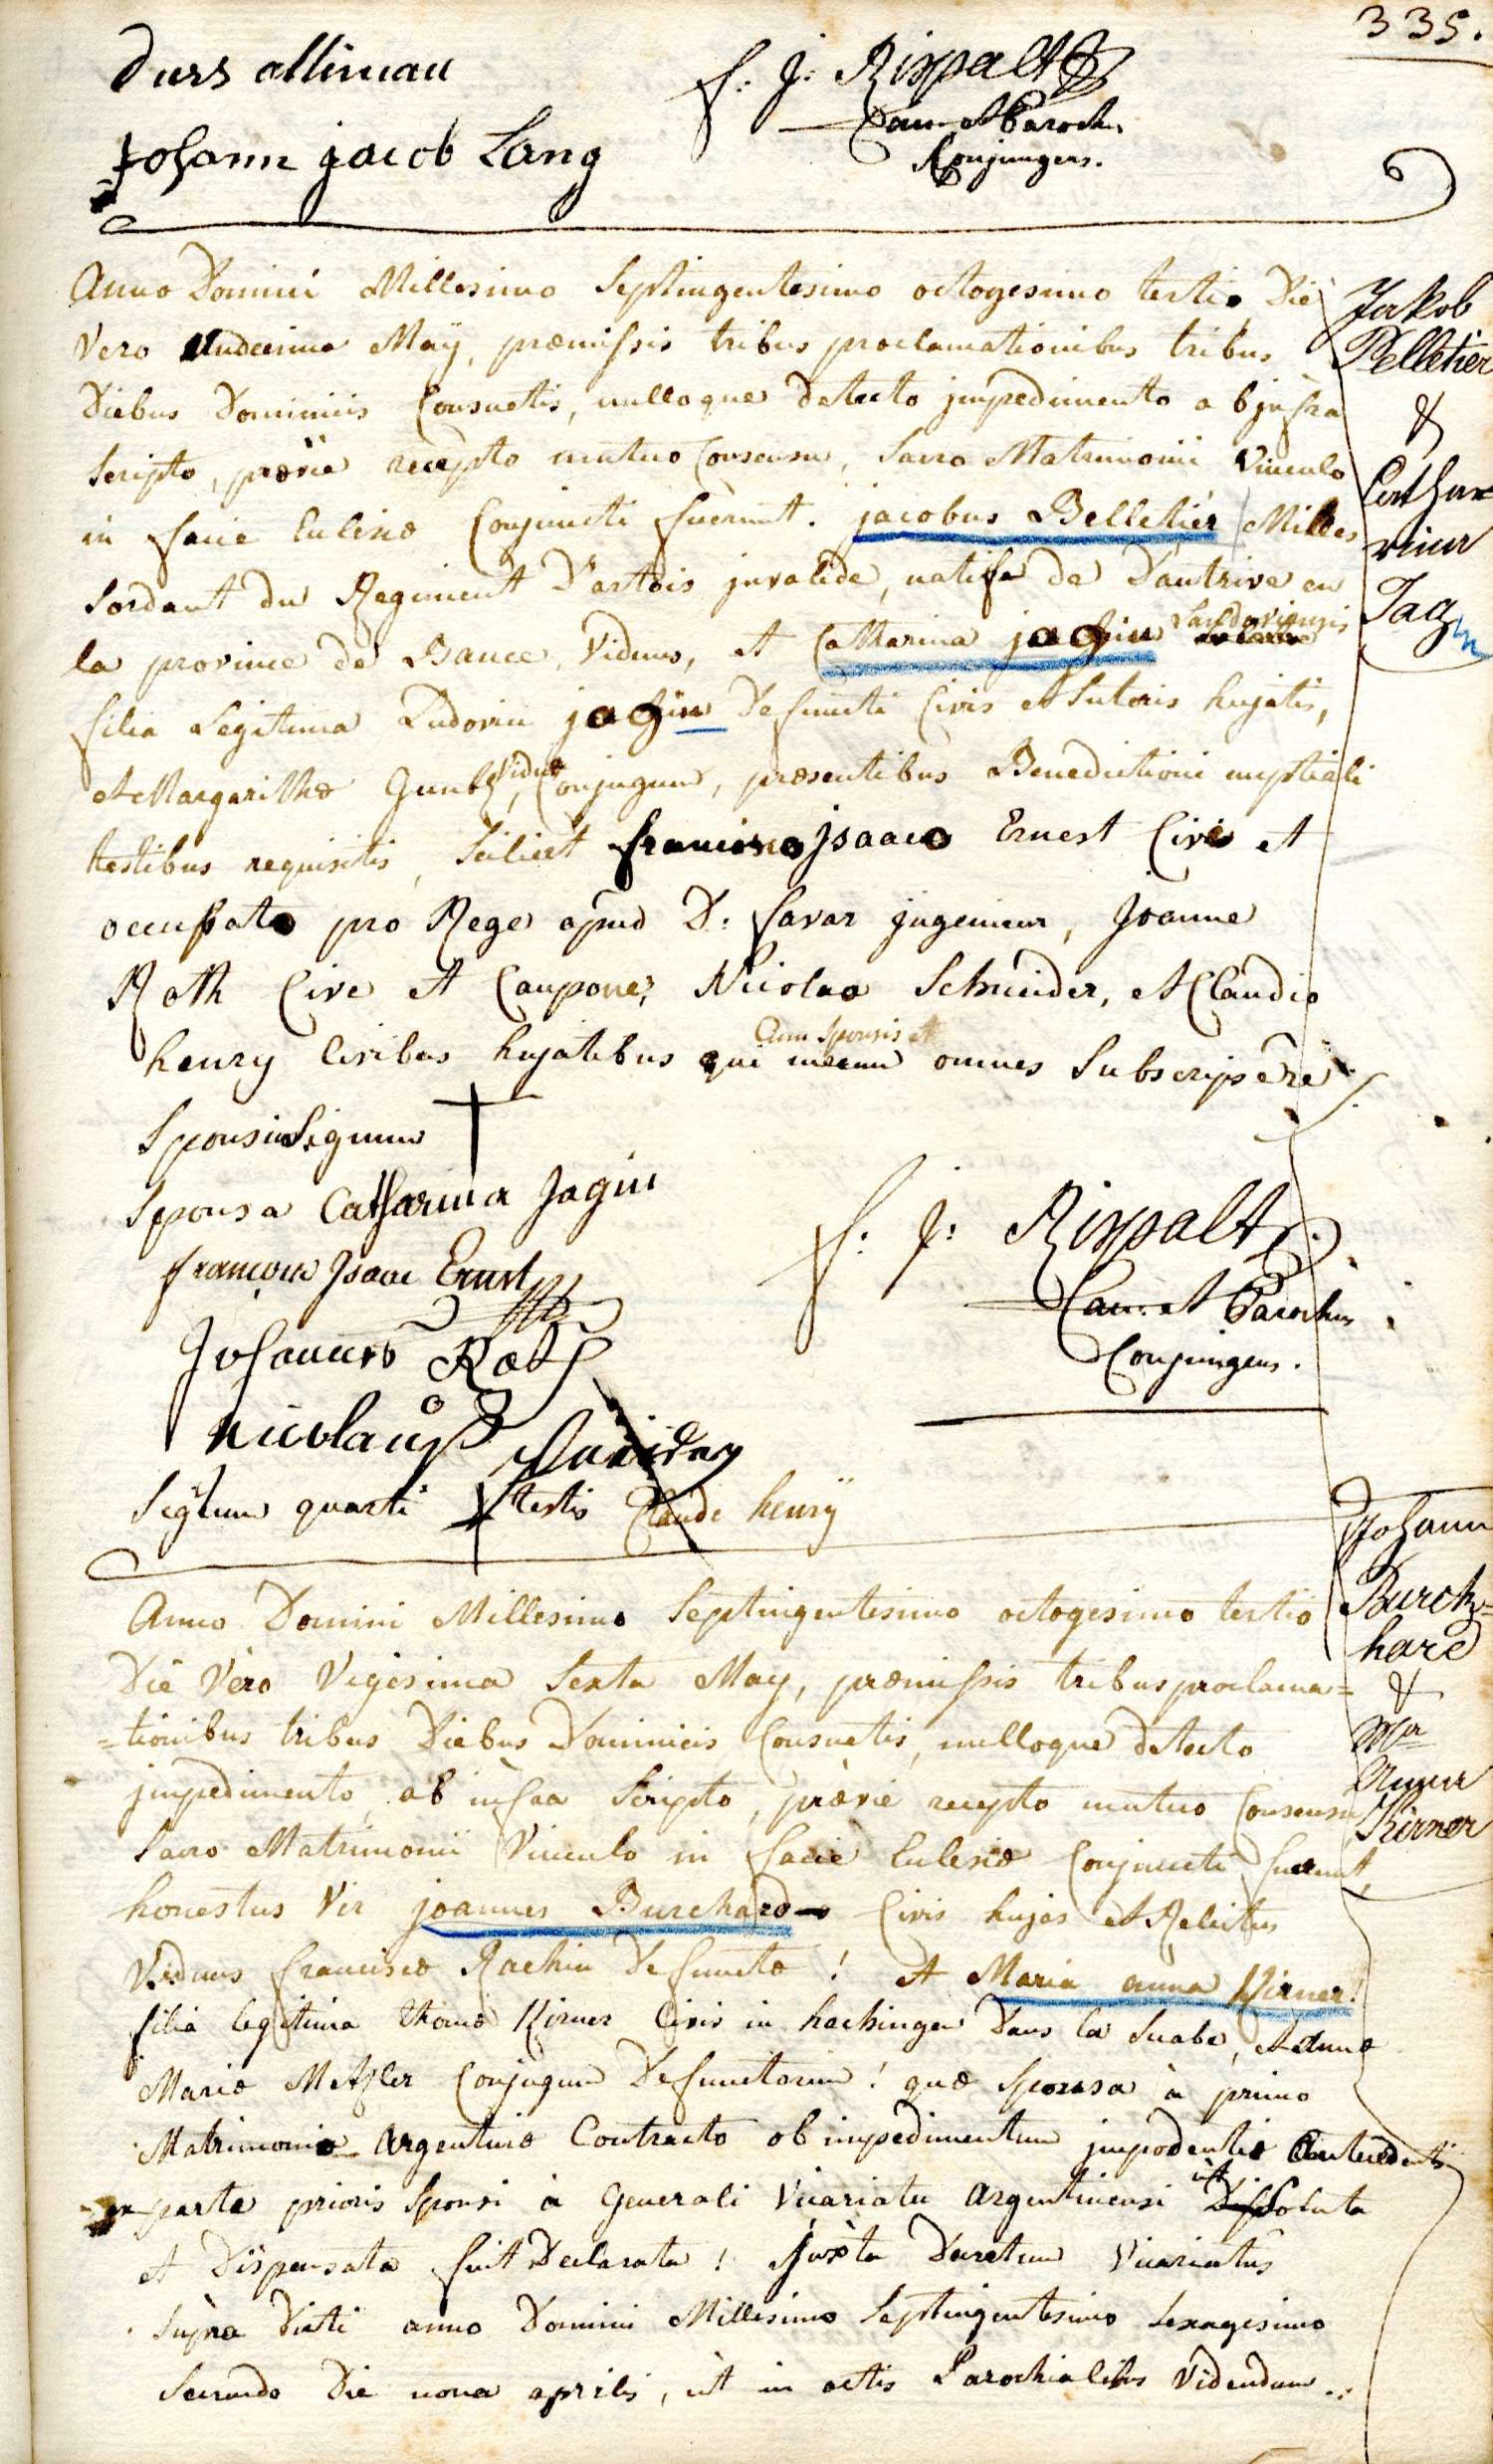 335.
durs allimau
f: J: Rispalt
Can. et Paroch.
Conjungens.
Johann jacob Lang
Anno Domini Millesimo Septingentesimo octogesimo tertio Die
Vero undecima Maÿ, præmissis tribus proclamationibus tribus
Diebus Dominicis Consuetis, nulloque detecto jmpedimento ab jnfra
scripto, prævie recepto mutuo Consensu, Sacro Matrimonii Vinculo
in facie Eclesiæ Conjuncti fuerunt. jacobus Belletier Milles
Sordant du Regiment D'artois jnvalide, natif de Dautrive en
la province de Bauce, Viduus, et Catharina jagin Landaviensis
filia Legitima Ludovici jagin Defuncti Civis et Sutoris hujatis,
et Margarithæ Guntz, Viduæ Conjugum, præsentibus Benedictioni nuptiali
testibus requisitis, Scilicet francisco Jsaaco Ernest Cive et
occupato pro Rege apud D: favar jngenieur, Joanne
Roth Cive et Caupone, Nicolao Schneider, et Claudio
henry Civibus hujatibus qui cum sponsis et mecum omnes Subscripsêre
Jakob
Pelletier
&
Catha=
rina
Jagin
Sponsi Signum
Sponsa Catharina Jagin
françois Jsaac Ernst
Johannes Roth
Nicolaus Schneider
Signum quarti testis Claude henrÿ
f: J: Rispalt
Can: et Parochus
Conjungens.
Anno Domini Millesimo Septingentesimo octogesimo tertio
Die Vero Vigesima Sexta May, præmissis tribus proclama=
=tionibus tribus Diebus Dominicis Consuetis, nulloque detecto
jmpedimento, ab infra Scripto, prævie recepto mutuo Consensu
Sacro Matrimonii Vinculo in facie Eclesiæ Conjuncti fuerunt,
honestus Vir joannes Burchard Civis hujas et Relictus
Viduus franciscæ Rachin Defunctæ! et Maria anna Kirner!
filia legitima Thomæ Kirner Civis in hachingen Dans la Suabe, et annæ
Mariæ Metzler Conjugum Defunctorum! quæ Sponsa à primo
Matrimonio Argentinæ Contracto ob impedimentum jmpodentiæ Antecedentis
ex parte prioris Sponsi à Generali Vicariatu Argentinensi ut Dissoluta
et Dispensata fuit Declarata! juxta Decretum Vicariatus
Supra Dicti anno Domini Millesimo Septingentesimo Sexagesimo
Secundo Die nona aprilis, ut in actis Parochialibus Videndum.
Johann
Burck=
hard
&
Mar
Anna
Kirner